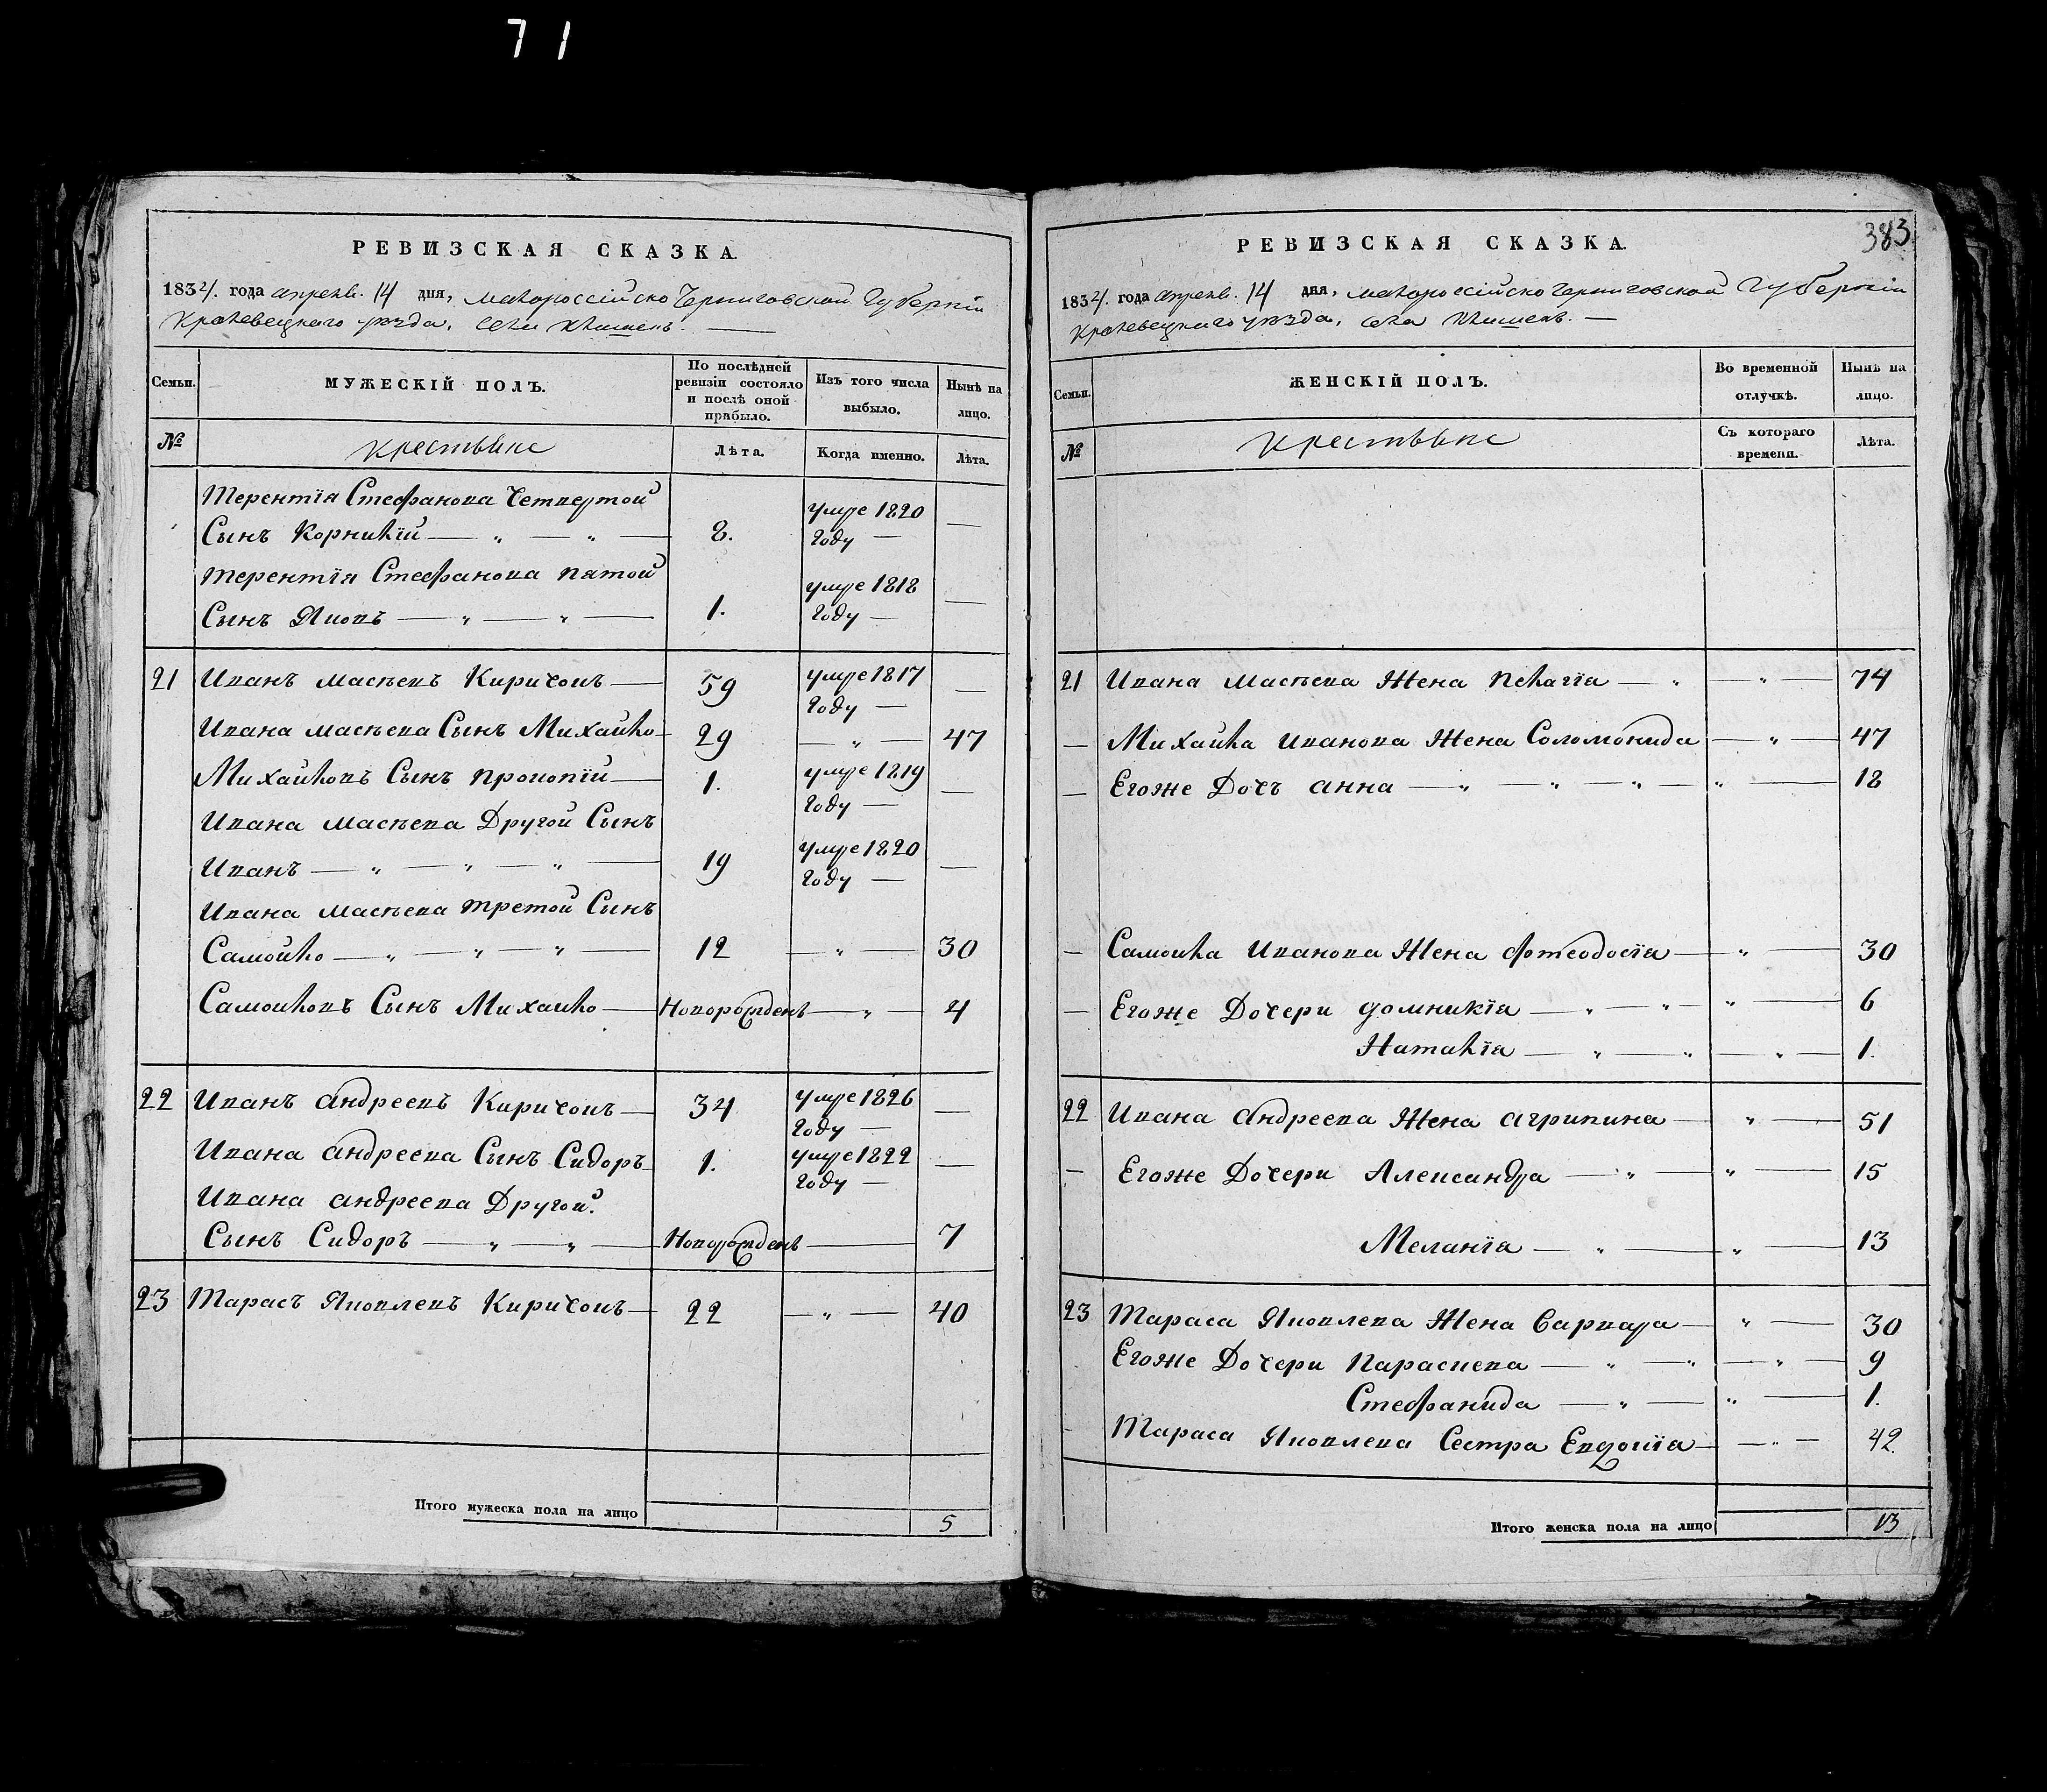 71
РЕВИЗСКАЯ СКАЗКА.
1834. года апреля. 14 дня, малороссійско Черниговской Губерніи
Кролевецкаго уезда, села Клишекъ.
Семьи.
МУЖЕСКІЙ ПОЛЪ.
По послѣдней ревизіи состояло и послѣ оной прибыло.
Изъ того числа выбыло.
Нынѣ на лицо.
№
Крестьяне
Лѣта.
Когда именно.
Лѣта.
Терентія Стефанова Четвертой
Сынъ Корнилій 8. умре 1820 Году
Терентія Стефанова пятой
Сынъ Яковъ 1. умре 1818 Году
21 Иванъ Масѣевъ Киричокъ 59 умре 1817 Году
Ивана Масѣева Сынъ Михайло 29 47
Михайловъ Сынъ прокопій 1. умре 1819 Году
Ивана Масѣева Другой Сынъ
Иванъ 19 умре 1820 Году
Ивана Масѣева третой Сынъ
Самойло 12 30
Самойловъ Сынъ Михайло Новорожденъ 4
22 Иванъ Андреевъ Киричокъ 34 умре 1826 Году
Ивана андреева Сынъ Сидоръ 1. умре 1822 Году
Ивана андреева Другой
Сынъ Сидоръ Новорожденъ 7
23 Тарасъ Яковлевъ Киричокъ 22 40
Итого мужеска пола на лицо 5
383
РЕВИЗСКАЯ СКАЗКА.
1834. года апреля. 14 дня, малороссійско Черниговской Губерніи
Кролевецкаго уезда, села Клишекъ.
Семьи.
ЖЕНСКІЙ ПОЛЪ.
Во временной отлучкѣ.
Нынѣ на лицо.
№
Крестьяне
Съ котораго времени.
Лѣта.
21 Ивана Масѣева Жена Пелагія 74
Михайла Иванова Жена Соломонида 47
Егоже Дочъ анна 18
Самойла Иванова Жена Фтеодосія 30
Егоже Дочери Домникія 6
Наталія 1.
22 Ивана Андреева Жена Агрипина 51
Егоже Дочери Александра 15
Меланія 13
23 Тараса Яковлева Жена Варвара 30
Егоже Дочери Параскева 9
Стефанида 1.
Тараса Яковлева Сестра Евдокія 42.
Итого женска пола на лицо 13